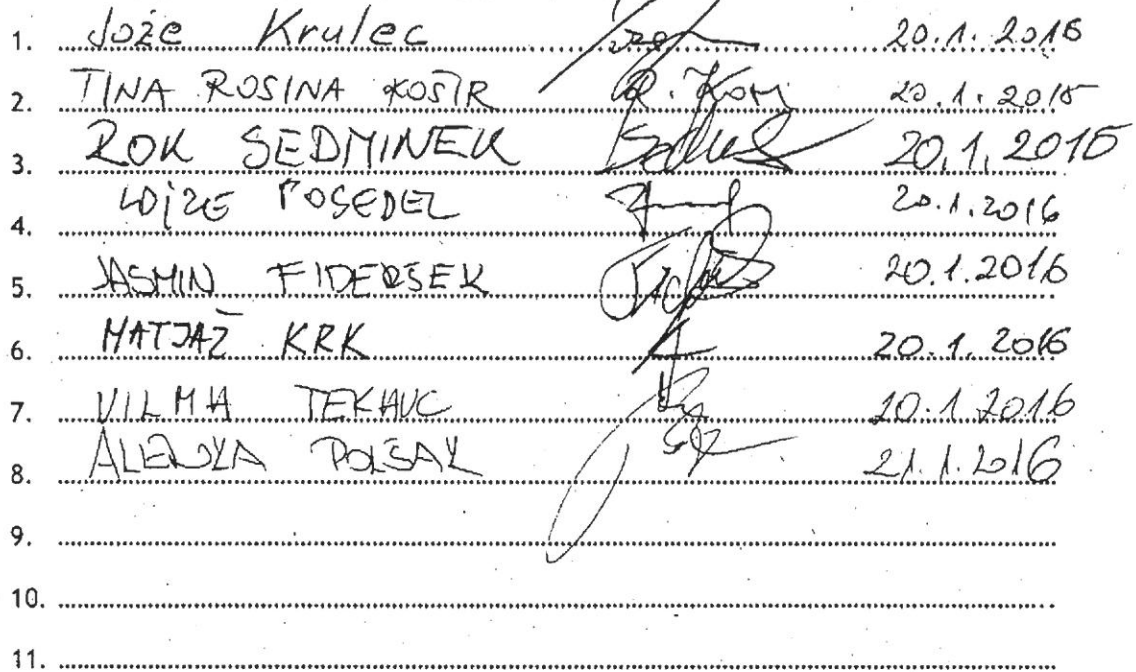 1. Jože Krulec 20.1.2016
2. TINA ROSINA KOŠIR R. Kom 20.1.2016
3. ROK SEDMINEK 20.1.2016
4. LOJZE POSEDEL 20.1.2016
5. JASMIN FIDERŠEK 20.1.2016
6. MATJAŽ KRK 20.1.2016
7. VILMA TEKAVC 20.1.2016
8. ALENKA POLŠAK 21.1.2016
9.
10.
11.